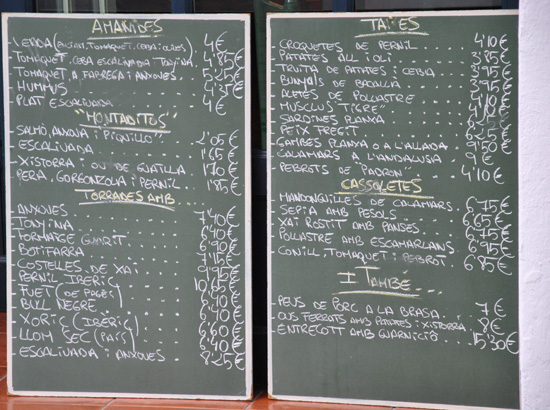 AMANIDES
- VERDA (ENCIAM, TOMAQUET, CEBA i OLIVES) 4€
- TOMAQUET, CEBA ESCALIVADA TONYINA. 4'85€
- TOMAQUET, A FARREGA i ANXOVES . . 5'25€
- HUMMUS . . . . 4'35€
- PLAT ESCALIVADA . . . . 4€
"MONTADITOS"
- SALMÓ, ANXOVA i PIQUILLO . . 2'05€
- ESCALIVADA . . . . 1'65€
- XISTORRA i OU DE GUATLLA . . 1'70€
- PERA, GORGONZOLA i PERNIL . . 1'85€
TORRADES AMB...
- ANXOVES . . . . 7'40€
- TONYINA . . . . 6'40€
- FORMATGE CURAT . . . . 6'90€
- BOTIFARRA . . . . 7'15€
- COSTELLES DE XAI . . . . 9'95€
- PERNIL IBÈRIC . . . . 10'65€
- FUET (DE PAGÈS) . . . . 6'40€
- BULL NEGRE . . . . 6'40€
- XORIÇ (IBÈRIC) . . . . 6'60€
- LLOM SEC (PAÍS) . . . . 6'40€
- ESCALIVADA i ANXOVES . . . . 8'25€
TAPES
- CROQUETES DE PERNIL . . . . 4'10€
- PATATES ALL i OLI . . . . 3'85€
- TRUITA DE PATATES i CEBA . . . . 3'95€
- BUNYOLS DE BACALLÀ . . . . 3'95€
- ALETES DE POLLASTRE . . . .
- MUSCLUS TIGRE . . . .
- SARDINES PLANXA . . . .
- PEIX FREGIT . . . . 6'25€
- GAMBES PLANXA O A L'ALLADA . . 9'50€
- CALAMARS A L'ANDALUSIA . . 9€
- PEBROTS DE PADRON . . . . 4'10€
CASSOLETES
- MANDONGUILLES DE CALAMARS . . 6'75€
- SEPIA AMB PESOLS . . . . 6'65€
- XAI ROSTIT AMB PANSES . . . . 6'75€
- POLLASTRE AMB ESCAMARLANS . . 6'95€
- CONILL, TOMAQUET i PEBROT . . 6'85€
I TAMBE...
- PEUS DE PORC A LA BRASA . . . . 7€
- OUS FERRATS AMB PATATES i XISTORRA . . 8€
- ENTRECOTT AMB GUARNICIÓ . . . . 15'30€